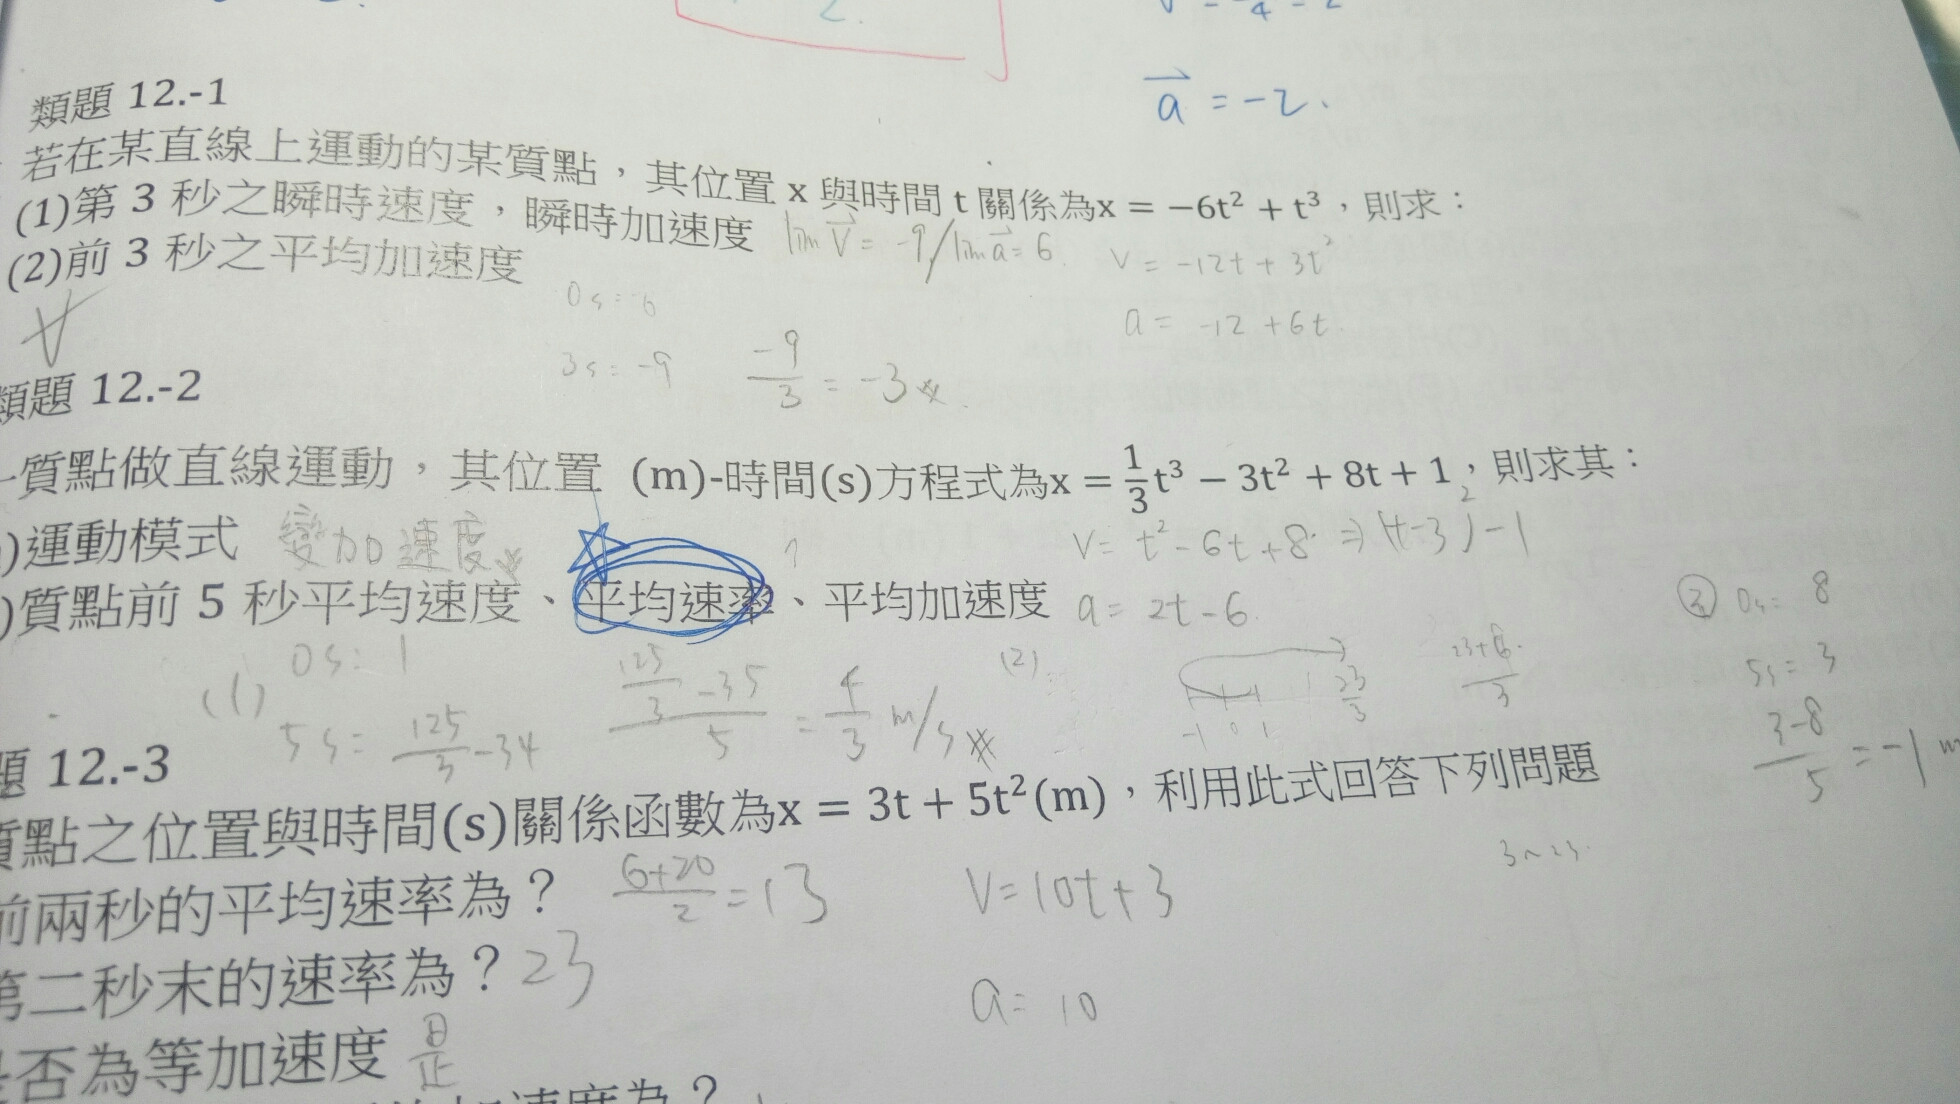 a = -2.
類題 12.-1
若在某直線上運動的某質點，其位置 x 與時間 t 關係為x = −6t² + t³，則求：
(1)第 3 秒之瞬時速度，瞬時加速度 lim V = -9/lim a = 6
V = -12t + 3t²
(2)前 3 秒之平均加速度
a = -12 + 6t
3s = -9
-9/3 = -3
類題 12.-2
一質點做直線運動，其位置 (m)-時間(s)方程式為x = 1/3 t³ − 3t² + 8t + 1，則求其：
)運動模式 變加速度
V = t² - 6t + 8 ⇒ (t-3)² - 1
)質點前 5 秒平均速度、平均速率、平均加速度 a = 2t - 6
(1) 0s: 1
5s = 125/3 - 34
(125/3 - 35)/5 = 4/3 m/s
(2)
-1 0 1 23/3
② 0s = 8
5s = 3
(3-8)/5 = -1
題 12.-3
質點之位置與時間(s)關係函數為x = 3t + 5t²(m)，利用此式回答下列問題
前兩秒的平均速率為？ (6+20)/2 = 13
V = 10t + 3
第二秒末的速率為？ 23
a = 10
是否為等加速度 是
速度為？